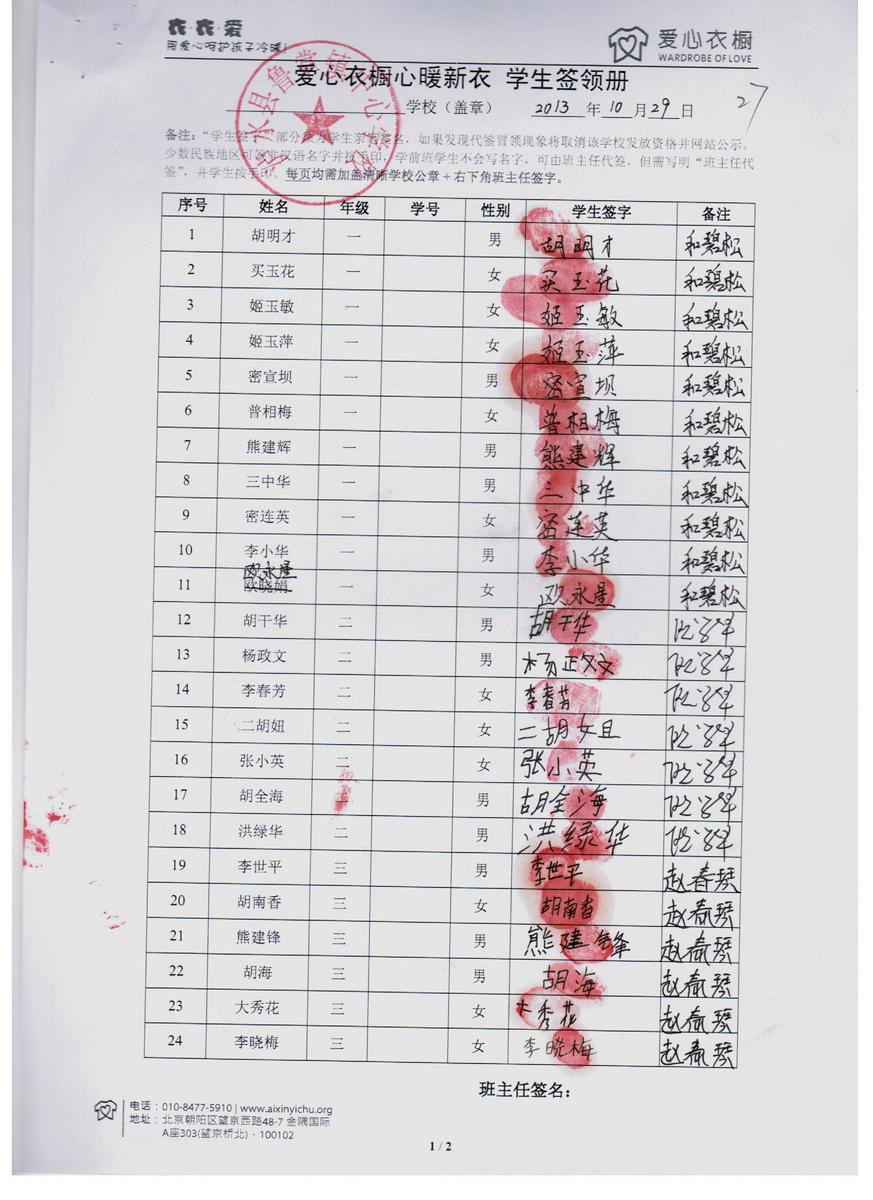 衣·衣·爱
用爱心呵护孩子冷暖!
爱心衣橱
WARDROBE OF LOVE
爱心衣橱心暖新衣 学生签领册
27
学校（盖章） 2013 年 10 月 29 日
备注：“学生签字”部分须为学生亲笔签名，如果发现代签冒领现象将取消该学校发放资格并网站公示。
少数民族地区可签非汉语名字并按手印，学前班学生不会写名字，可由班主任代签，但需写明“班主任代
签”，并学生按手印。每页均需加盖清晰学校公章＋右下角班主任签字。
序号 姓名 年级 学号 性别 学生签字 备注
1 胡明才 一 男 胡明才 和碧松
2 买玉花 一 女 买玉花 和碧松
3 姬玉敏 一 女 姬玉敏 和碧松
4 姬玉萍 一 女 姬玉萍 和碧松
5 密宣坝 一 男 密宣坝 和碧松
6 普相梅 一 女 普相梅 和碧松
7 熊建辉 一 男 熊建辉 和碧松
8 三中华 一 男 三中华 和碧松
9 密连英 一 女 密连英 和碧松
10 李小华 一 男 李小华 和碧松
欧永星
11 欧晓娟 一 女 欧永星 和碧松
12 胡干华 二 男 胡干华
13 杨政文 二 男 杨政文
14 李春芳 二 女 李春芳
15 二胡妞 二 女 二胡妞
16 张小英 二 女 张小英
17 胡全海 二 男 胡全海
18 洪绿华 二 男 洪绿华
19 李世平 三 男 李世平 赵春琴
20 胡南香 三 女 胡南香 赵春琴
21 熊建锋 三 男 熊建锋 赵春琴
22 胡海 三 男 胡海 赵春琴
23 大秀花 三 女 大秀花 赵春琴
24 李晓梅 三 女 李晓梅 赵春琴
班主任签名：
电话：010-8477-5910 | www.aixinyichu.org
地址：北京朝阳区望京西路48-7 金隅国际
A座303(望京桥北)·100102
1 / 2